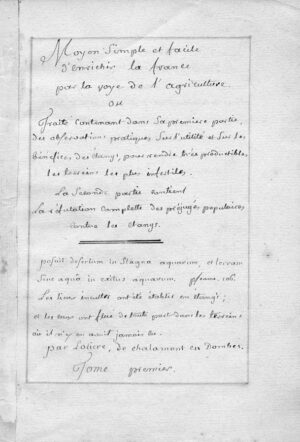 Moyen Simple et facile
d'enrichir la france
par la voye de l'agriculture
ou
Traité contenant dans sa premiere partie,
des observations pratiques sur l'utilité et sur les
bénéfices des étangs, pour rendre très productibles
les terreins les plus infertiles.
La seconde partie contient
La réfutation complette des préjugés populaires
contre les étangs.
posuit desertum in stagna aquarum, et terram
sine aquâ in exitus aquarum. pseaume. 106.
Les lieux incultes ont été établis en étangs;
et les eaux ont flué de toute part dans les terreins
où il n'y en avait jamais eu.
par de chalamont en Dombes.
Tome premier.